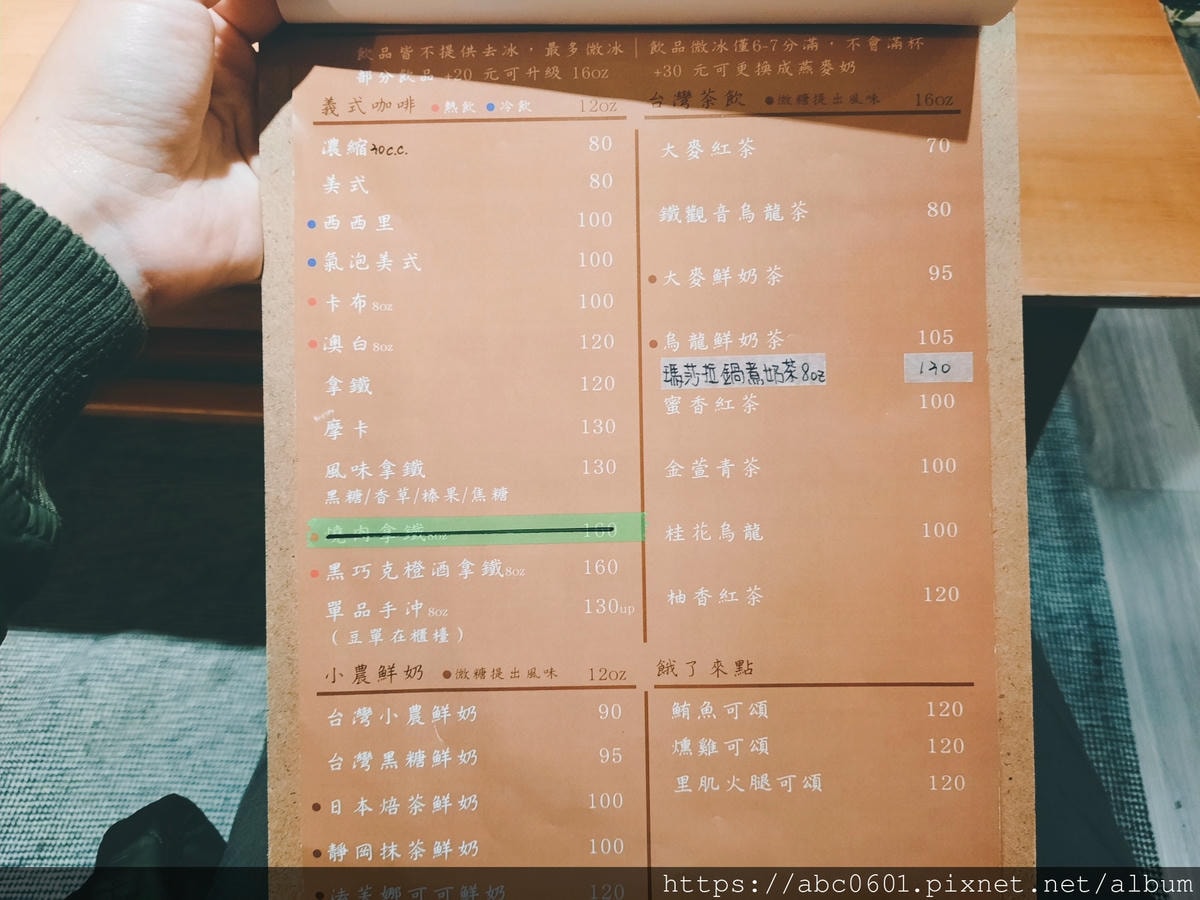 飲品皆不提供去冰，最多微冰｜飲品微冰僅6-7分滿，不會滿杯
部分飲品 +20 元可升級 16oz
+30 元可更換成燕麥奶
義式咖啡 ●熱飲 ●冷飲 12oz
濃縮30c.c. 80
美式 80
●西西里 100
●氣泡美式 100
●卡布8oz 100
●澳白8oz 120
拿鐵 120
摩卡 130
風味拿鐵 130
黑糖/香草/榛果/焦糖
●燒肉拿鐵8oz 160
●黑巧克橙酒拿鐵8oz 160
單品手沖8oz 130up
（豆單在櫃檯）
台灣茶飲 ●微糖提出風味 16oz
大麥紅茶 70
鐵觀音烏龍茶 80
●大麥鮮奶茶 95
●烏龍鮮奶茶 105
瑪莎拉鍋煮奶茶8oz 130
蜜香紅茶 100
金萱青茶 100
桂花烏龍 100
柚香紅茶 120
小農鮮奶 ●微糖提出風味 12oz
台灣小農鮮奶 90
台灣黑糖鮮奶 95
●日本焙茶鮮奶 100
●靜岡抹茶鮮奶 100
可可鮮奶 120
餓了來點
鮪魚可頌 120
燻雞可頌 120
里肌火腿可頌 120
https://abc0601.pixnet.net/album